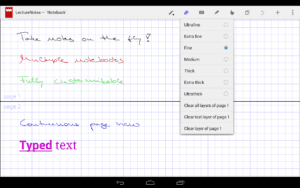 LectureNotes – Notebook
Take notes on the fly!
Multiple notebooks
Fully customizable
page 1
page 2
Continuous page view
Typed text
Ultrafine
Extra fine
Fine
Medium
Thick
Extra thick
Ultrathick
Clear all layers of page 1
Clear text layer of page 1
Clear layer of page 1